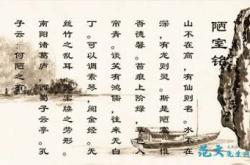 陋室铭
山不在高，有仙则名。水不在
深，有龙则灵。斯是陋室，惟
吾德馨。苔痕上阶绿，草色入
帘青。谈笑有鸿儒，往来无白
丁。可以调素琴，阅金经。无
丝竹之乱耳，无案牍之劳形。
南阳诸葛庐，西蜀子云亭。孔
子云：何陋之有？
范文